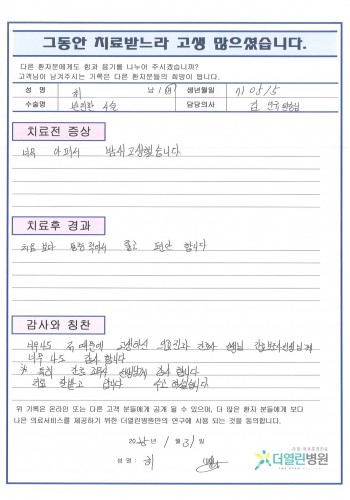 그동안 치료받느라 고생 많으셨습니다.
다른 환자분에게도 힘과 용기를 나누어 주시겠습니까?
고객님이 남겨주시는 기록은 다른 환자분들의 희망이 됩니다.
성 명 허 남 / 여 생년월일 710515
수술명 수술 담당의사 김
치료전 증상
너무 아파서 밤새 고생했습니다.
치료후 경과
치료 보다 좋고 편안 합니다
감사와 칭찬
너무나도 저 때문에 고생하신 의료진과 간호사 선생님 간호조무사선생님께
너무나도 감사합니다
※ 특히 간호 조무사 선생님께 감사 합니다
치료 잘받고 갑니다 수고 하셨습니다
위 기록은 온라인 또는 다른 고객 분들에게 공개 될 수 있으며, 더 많은 환자 분들에게 보다
나은 의료서비스를 제공하기 위한 더열린병원만의 연구에 사용 되는 것을 동의합니다.
20 년 1 월 31 일
성 명 : 허
더열린병원